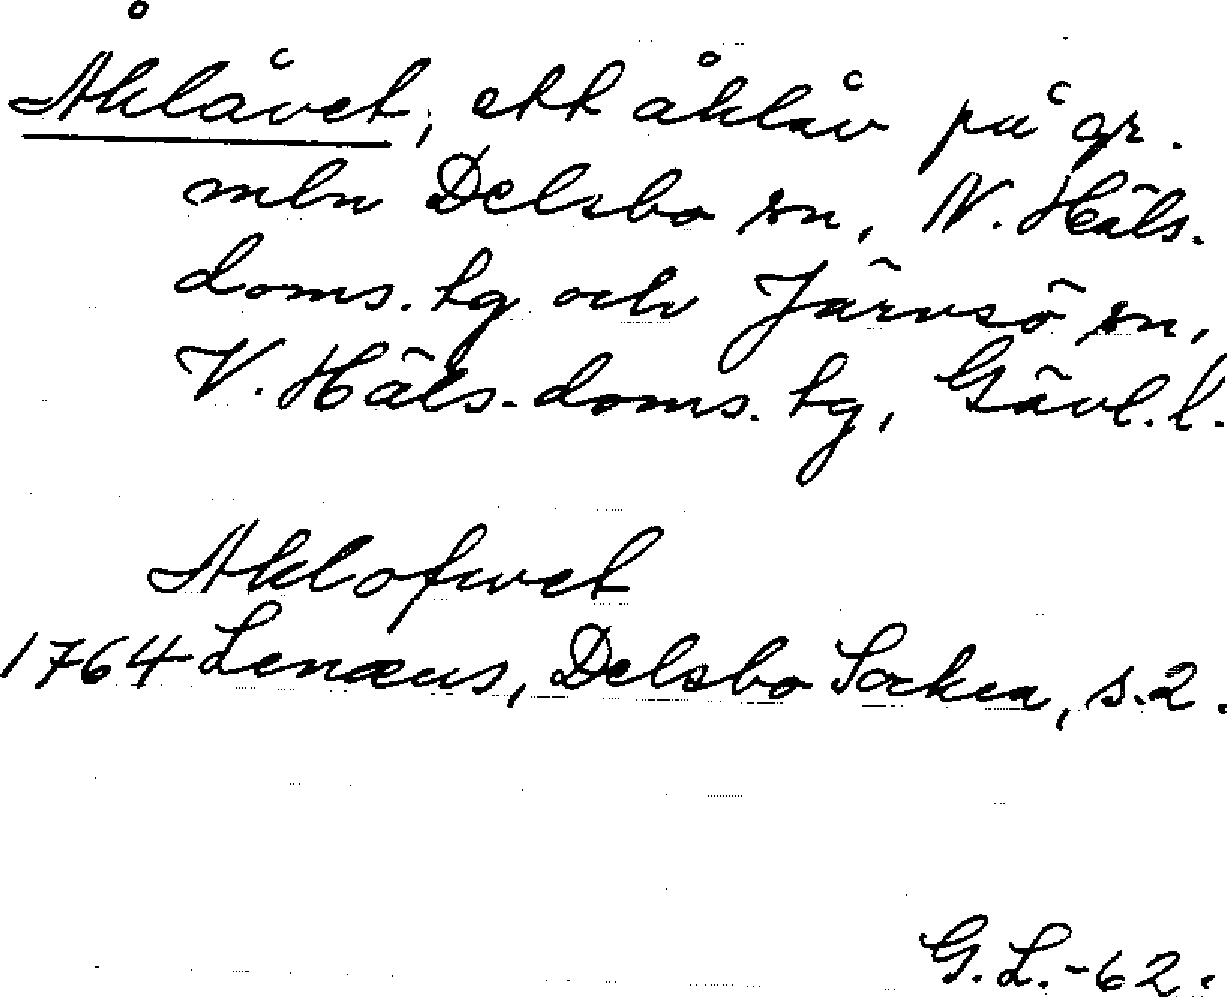 Åklåvet, ett åklåv på gr.
mln Delsbo sn, N. Häls.
doms. hg och Järvsö sn,
V. Häls. doms. hg, Gävl. l.
Aklofwet
1764 Lenæus, Delsbo Socken, s. 2.
G. L. -62.